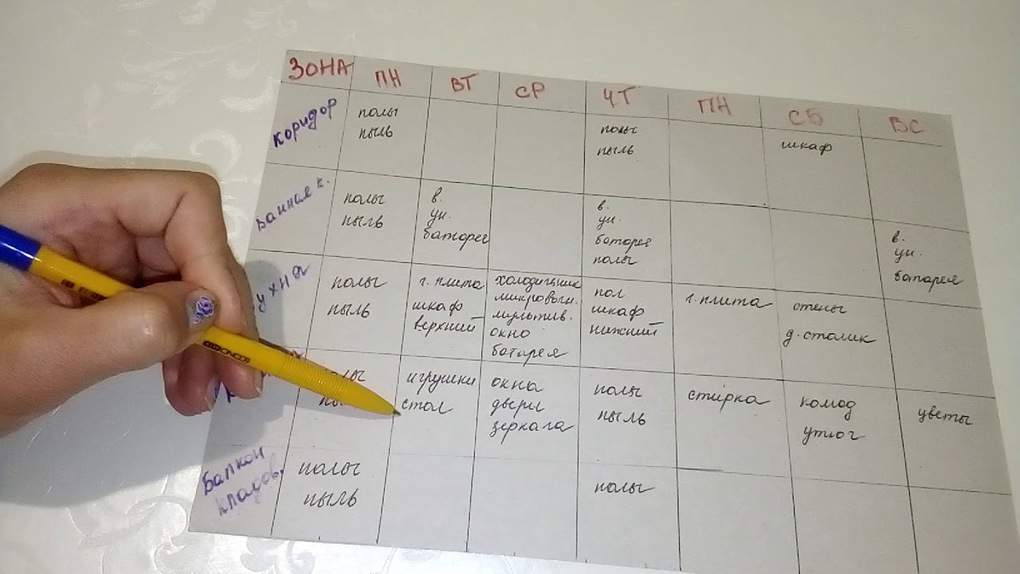 ЗОНА ПН ВТ СР ЧТ ПН СБ ВС
коридор
полы
пыль
полы
пыль
шкаф
ванная к.
полы
пыль
в.
ун.
батарея
в.
ун.
батарея
полы
в.
ун.
батарея
ухня
полы
пыль
г. плита
шкаф
верхний
холодильник
микроволн.
мультив.
окно
батарея
пол
шкаф
нижний
г. плита
стены
д. столик
полы
игрушки
стол
окна
двери
зеркала
полы
пыль
стирка
комод
утюг
цветы
Балкон
кладов.
полы
пыль
полы